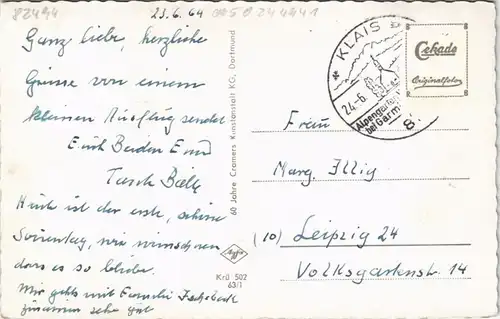 82494
23.6.64
Ganz liebe, herzliche
Grüsse von einem
kleinen Ausflug sendet
Euch Beiden Eure
Heute ist der erste, schöne
Sonnentag, wir wünschen
dass es so bliebe.
Mir gehts mit Familie
zusammen sehr gut
60 Jahre Cramers Kunstanstalt KG, Dortmund
Agfa
Krü 502
63/1
KLAIS
24.-6.
Alpengarten
bei Garm
8.
Cekade
Originalfotos
Frau
Marg. Illig
(10) Leipzig 24
Volksgartenstr. 14